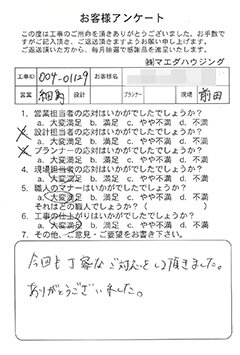 お客様アンケート
この度は工事のご用命を頂きありがとうございました。お手数で
すがご記入頂き、ご返送頂きますようお願い申し上げます。
ご返送頂いた方から、毎月抽選で感謝品を進呈いたします。
㈱マエダハウジング
工事ID 004-01129 お客様名
営業 設計 プランナー 現場 前田
1. 営業担当者の応対はいかがでしたでしょうか?
a. 大変満足 b. 満足 c. やや不満 d. 不満
2. 設計担当者の応対はいかがでしたでしょうか?
a. 大変満足 b. 満足 c. やや不満 d. 不満
3. プランナーの応対はいかがでしたでしょうか?
a. 大変満足 b. 満足 c. やや不満 d. 不満
4. 現場担当者の応対はいかがでしたでしょうか?
a. 大変満足 b. 満足 c. やや不満 d. 不満
5. 職人のマナーはいかがでしたでしょうか?
a. 大変満足 b. 満足 c. やや不満 d. 不満
それはどの職人でしょうか?( )
6. 工事の仕上がりはいかがでしたでしょうか?
a. 大変満足 b. 満足 c. やや不満 d. 不満
7. その他、ご意見・ご要望をお書き下さい。
今回も丁寧なご対応をして頂きました。
ありがとうございました。